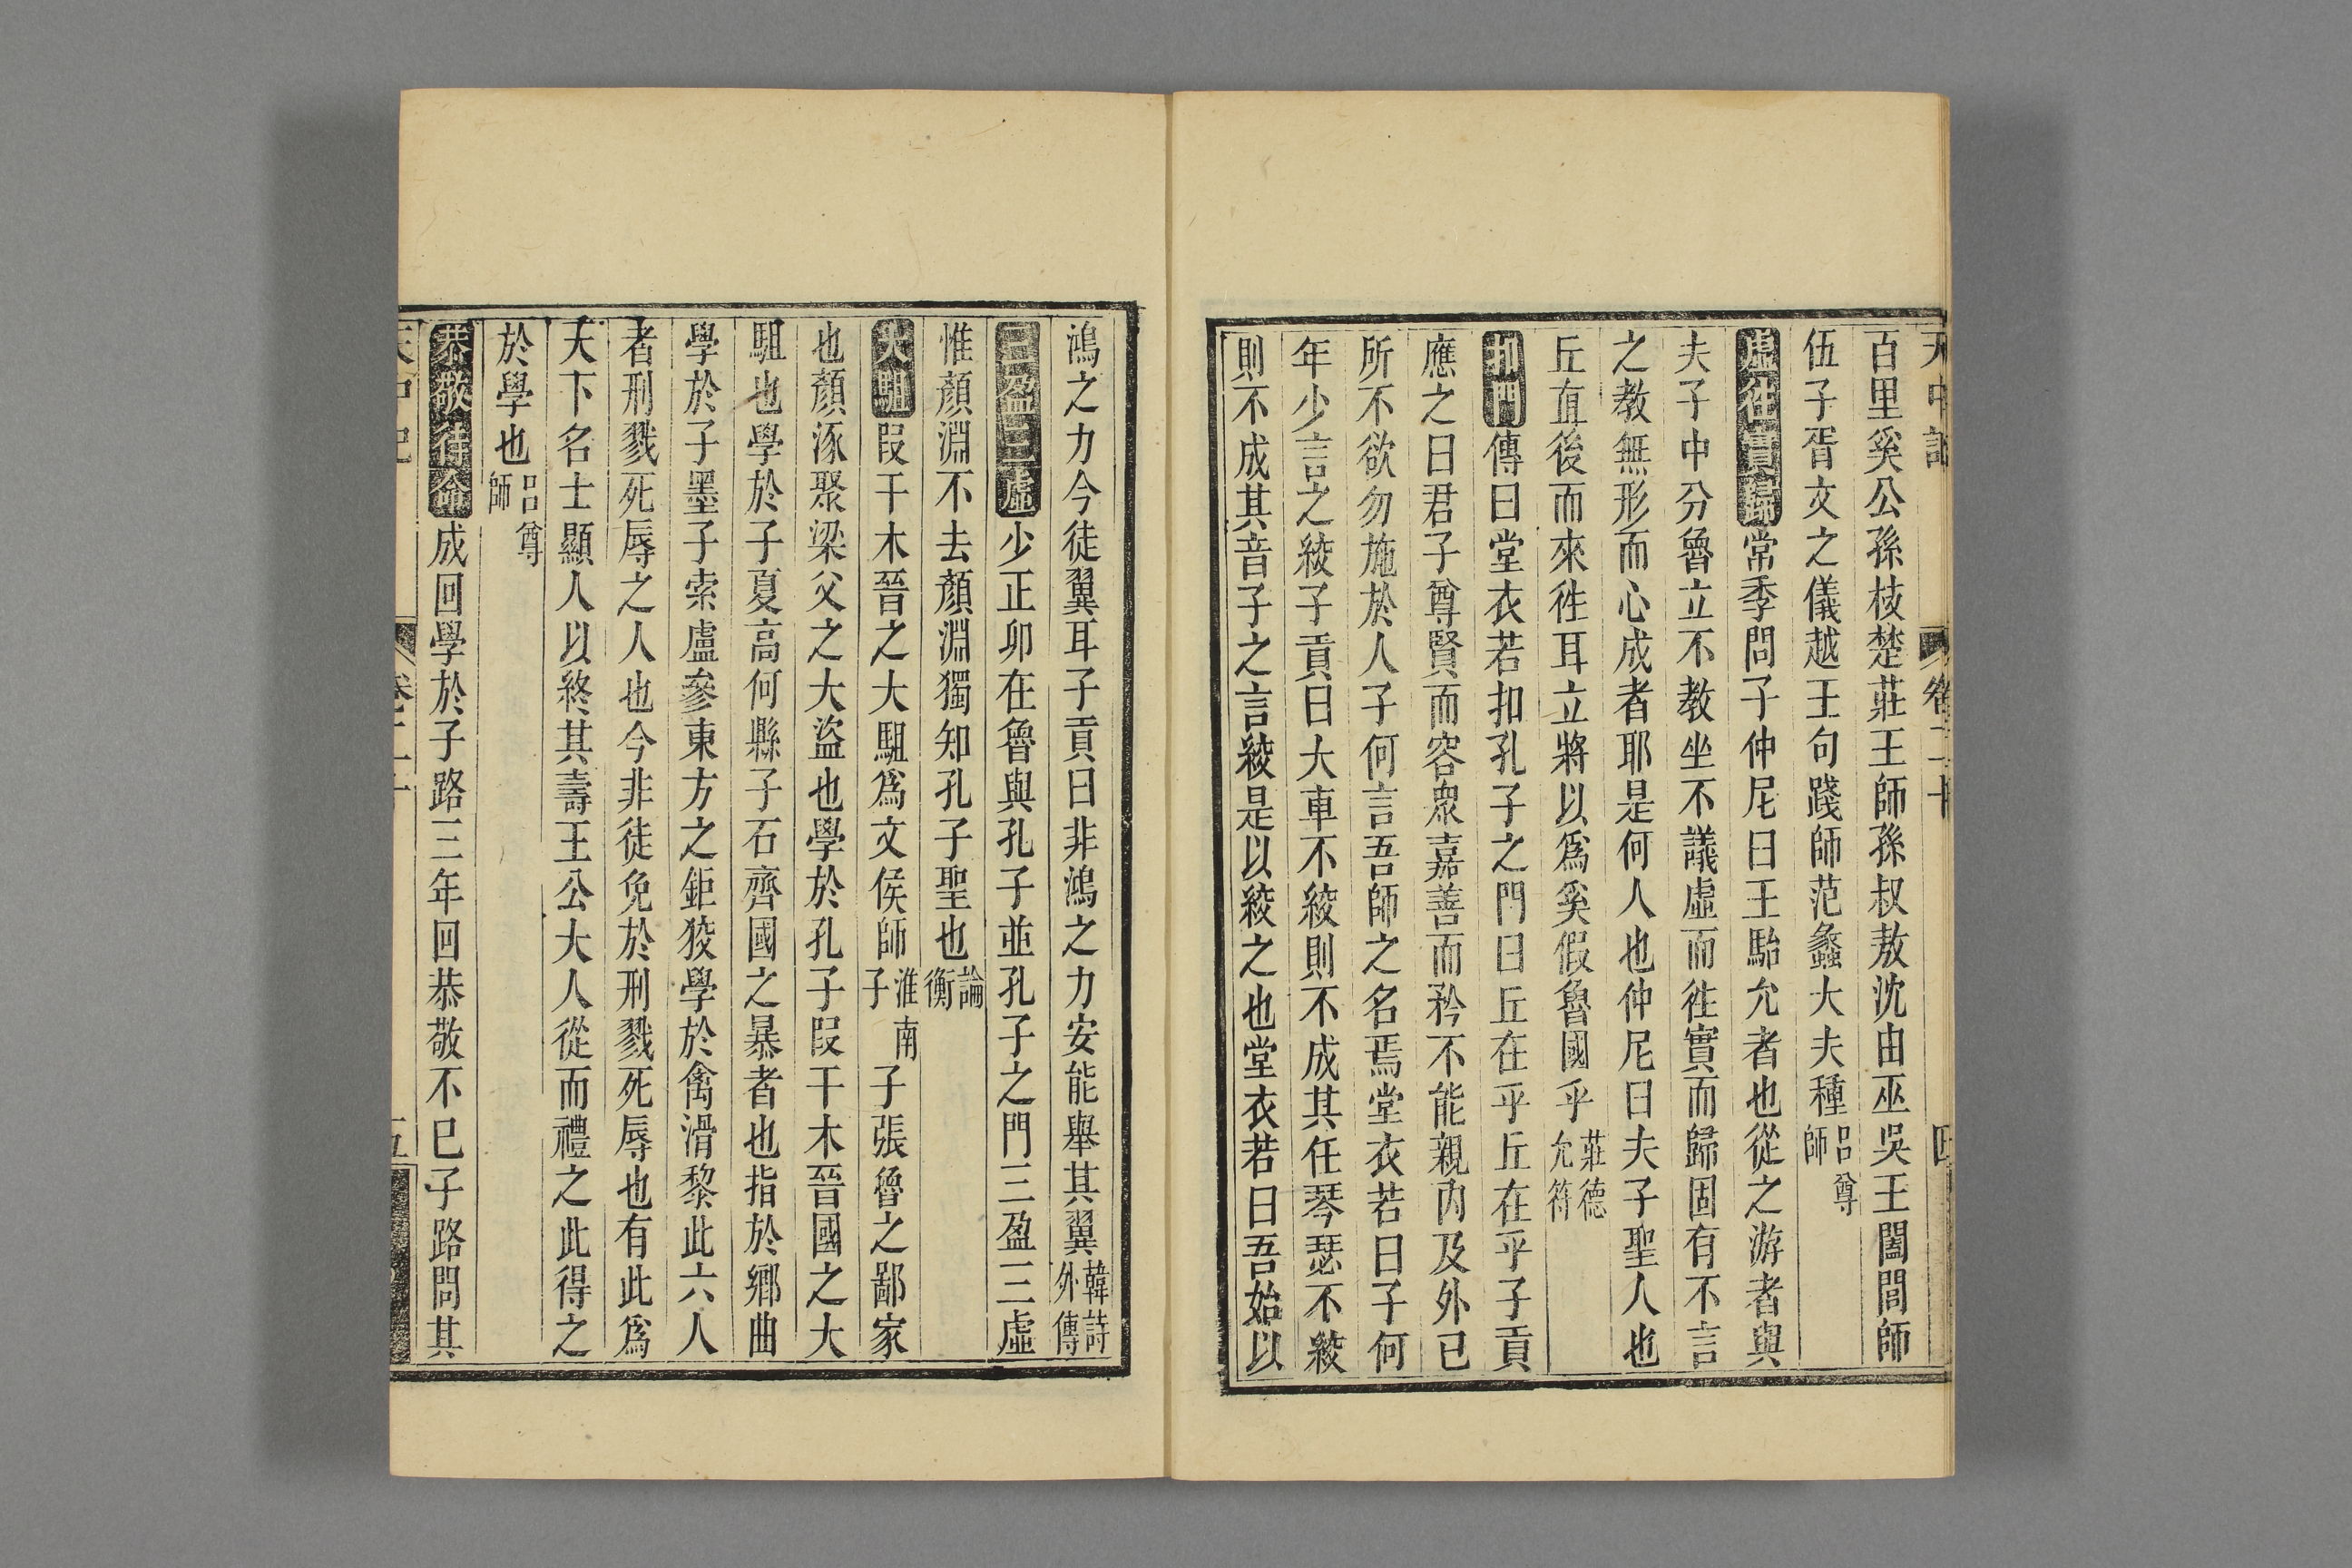 天中記 卷二十 四
百里奚公孫枝楚莊王師孫叔敖沈由巫吳王闔閭師
伍子胥文之儀越王句踐師范蠡大夫種呂尊師
虛徃實歸常季問子仲尼曰王駘允者也從之游者與
夫子中分魯立不教坐不議虛而徃實而歸固有不言
之教無形而心成者耶是何人也仲尼曰夫子聖人也
丘直後而來徃耳立將以爲奚假魯國乎莊德允符
扣門傳曰堂衣若扣孔子之門曰丘在乎丘在乎子貢
應之曰君子尊賢而容衆嘉善而矜不能親內及外已
所不欲勿施於人子何言吾師之名焉堂衣若曰子何
年少言之綾子貢曰大車不綾則不成其任琴瑟不綾
則不成其音子之言綾是以綾之也堂衣若曰吾始以
鴻之力今徒翼耳子貢曰非鴻之力安能舉其翼韓詩外傳
三盈三虛少正卯在魯與孔子並孔子之門三盈三虛
惟顏淵不去顏淵獨知孔子聖也論衡
大駔段干木晉之大駔爲文侯師淮南子子張魯之鄙家
也顏涿聚梁父之大盜也學於孔子段干木晉國之大
駔也學於子夏高何縣子石齊國之暴者也指於鄉曲
學於子墨子索盧參東方之鉅狡學於禽滑黎此六人
者刑戮死辱之人也今非徒免於刑戮死辱也有此爲
天下名士顯人以終其壽王公大人從而禮之此得之
於學也呂尊師
恭敬待命成回學於子路三年回恭敬不已子路問其
五